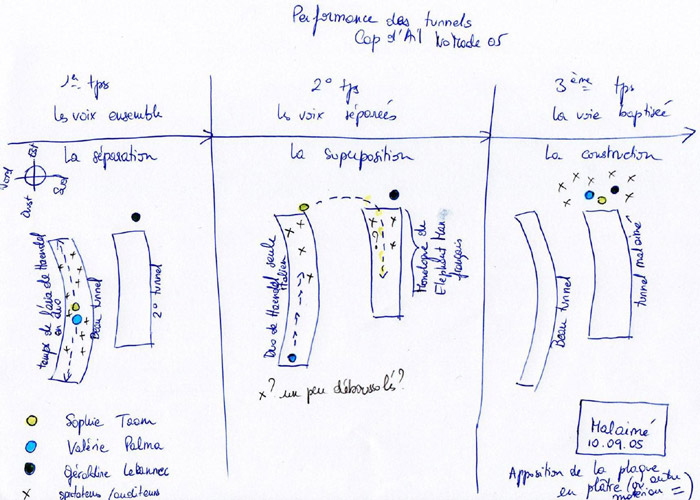 Performance des tunnels
Cap d'Ail NoMade 05
1er tps
les voix ensemble
2° tps
les voix séparées
3ème tps
la voie baptisée
La séparation
La superposition
La construction
Nord
Est
Sud
Ouest
temps de l'aria de Haendel
en duo
Beau tunnel
2° tunnel
Duo de Haendel seule
Italien
Monologue de
Elephant Man
français
Beau tunnel
tunnel malaimé
x? un peu déboussolés?
Sophie Taam
Valérie Palma
Géraldine Lebannec
x spectateurs/auditeurs
Malaimé
10.09.05
Apposition de la plaque
en plâtre (ou autre
matériau)